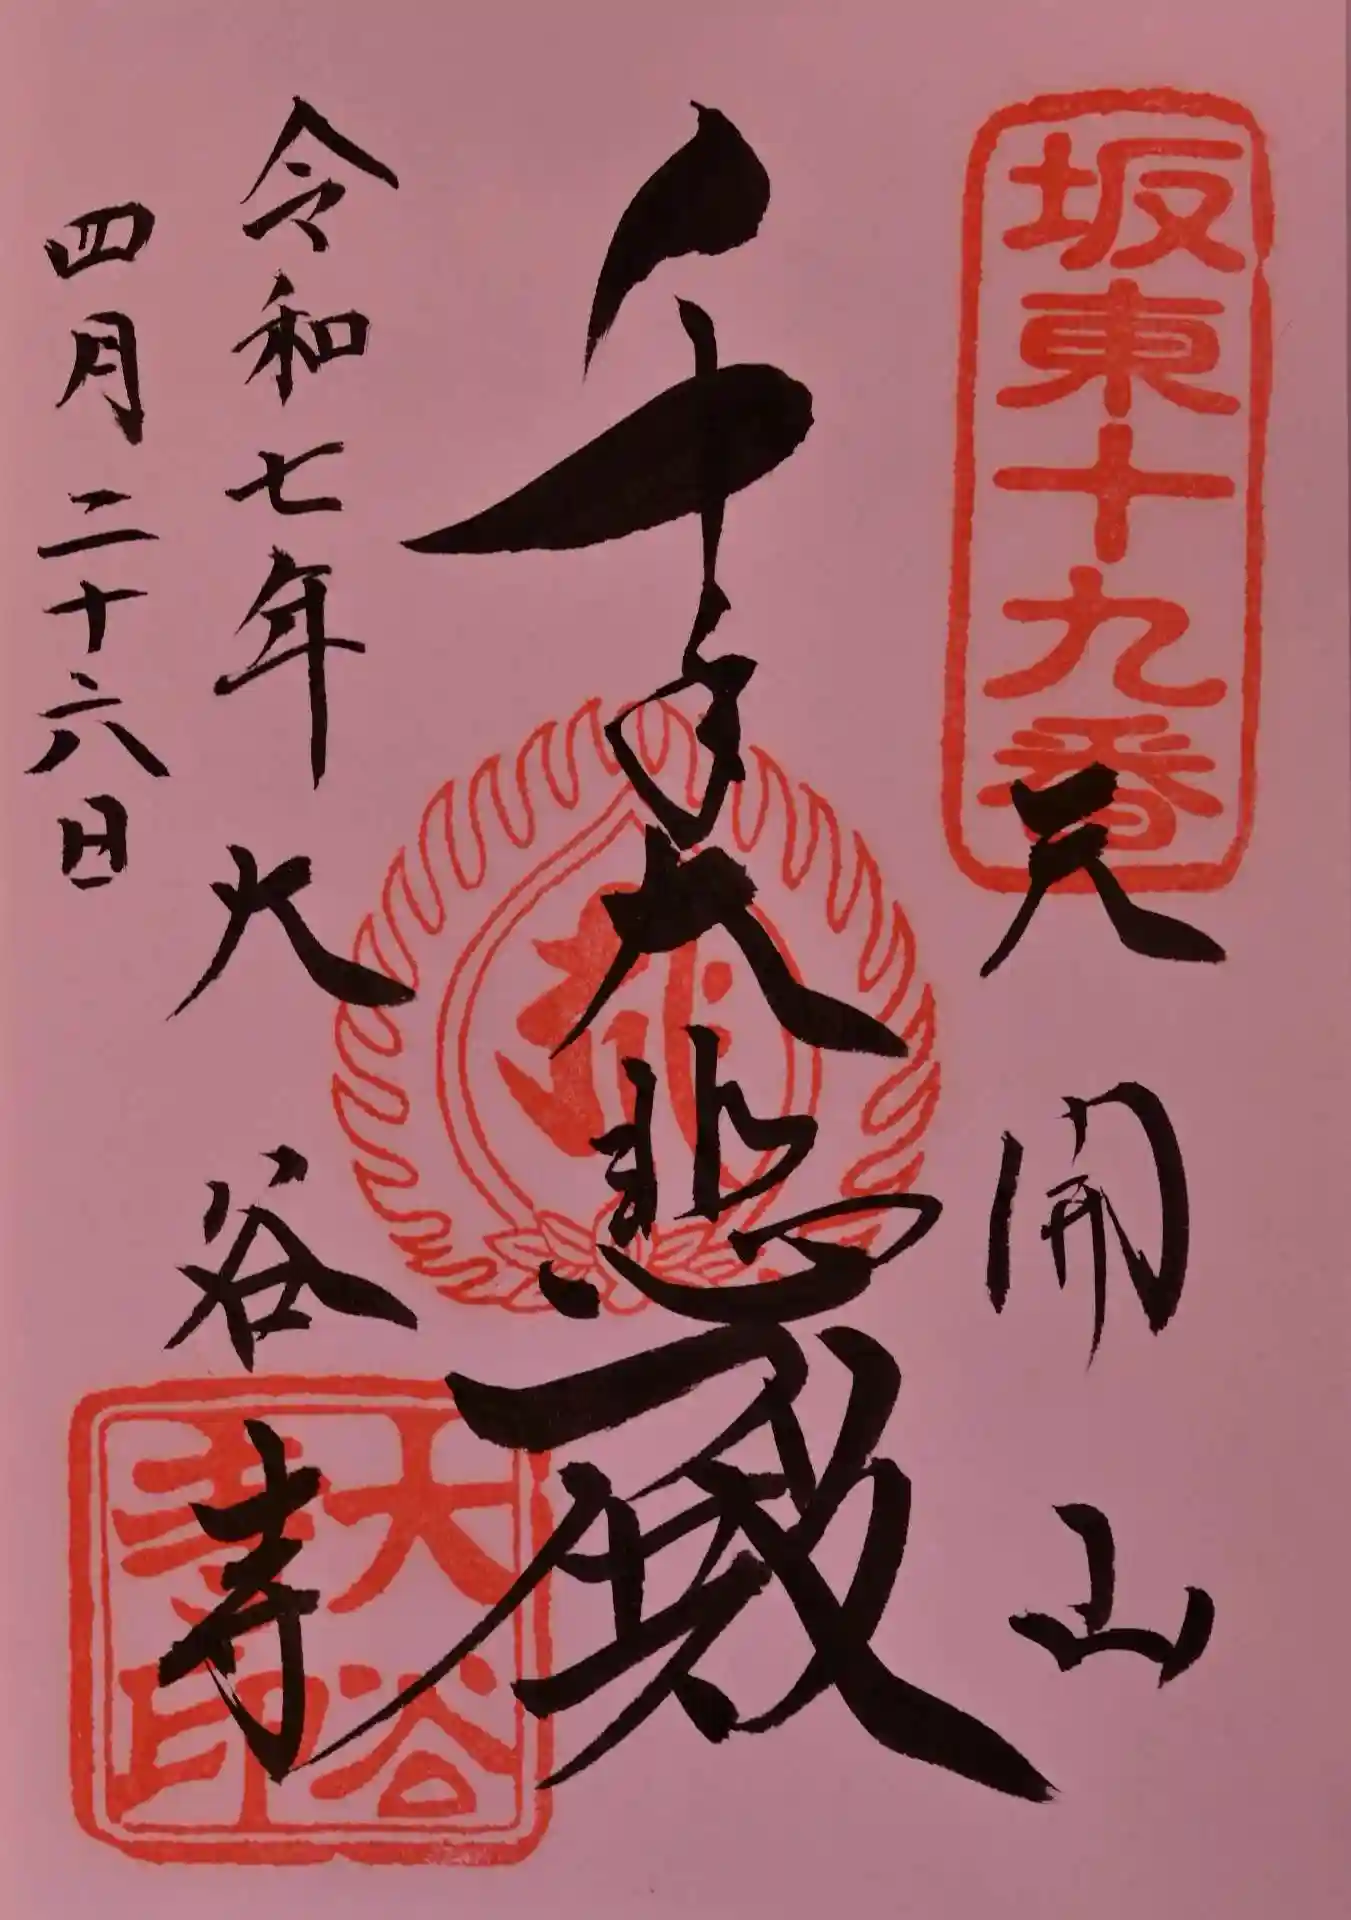 坂東十九番
天開山
千手大悲殿
令和七年
四月二十六日
大谷寺
大谷寺印